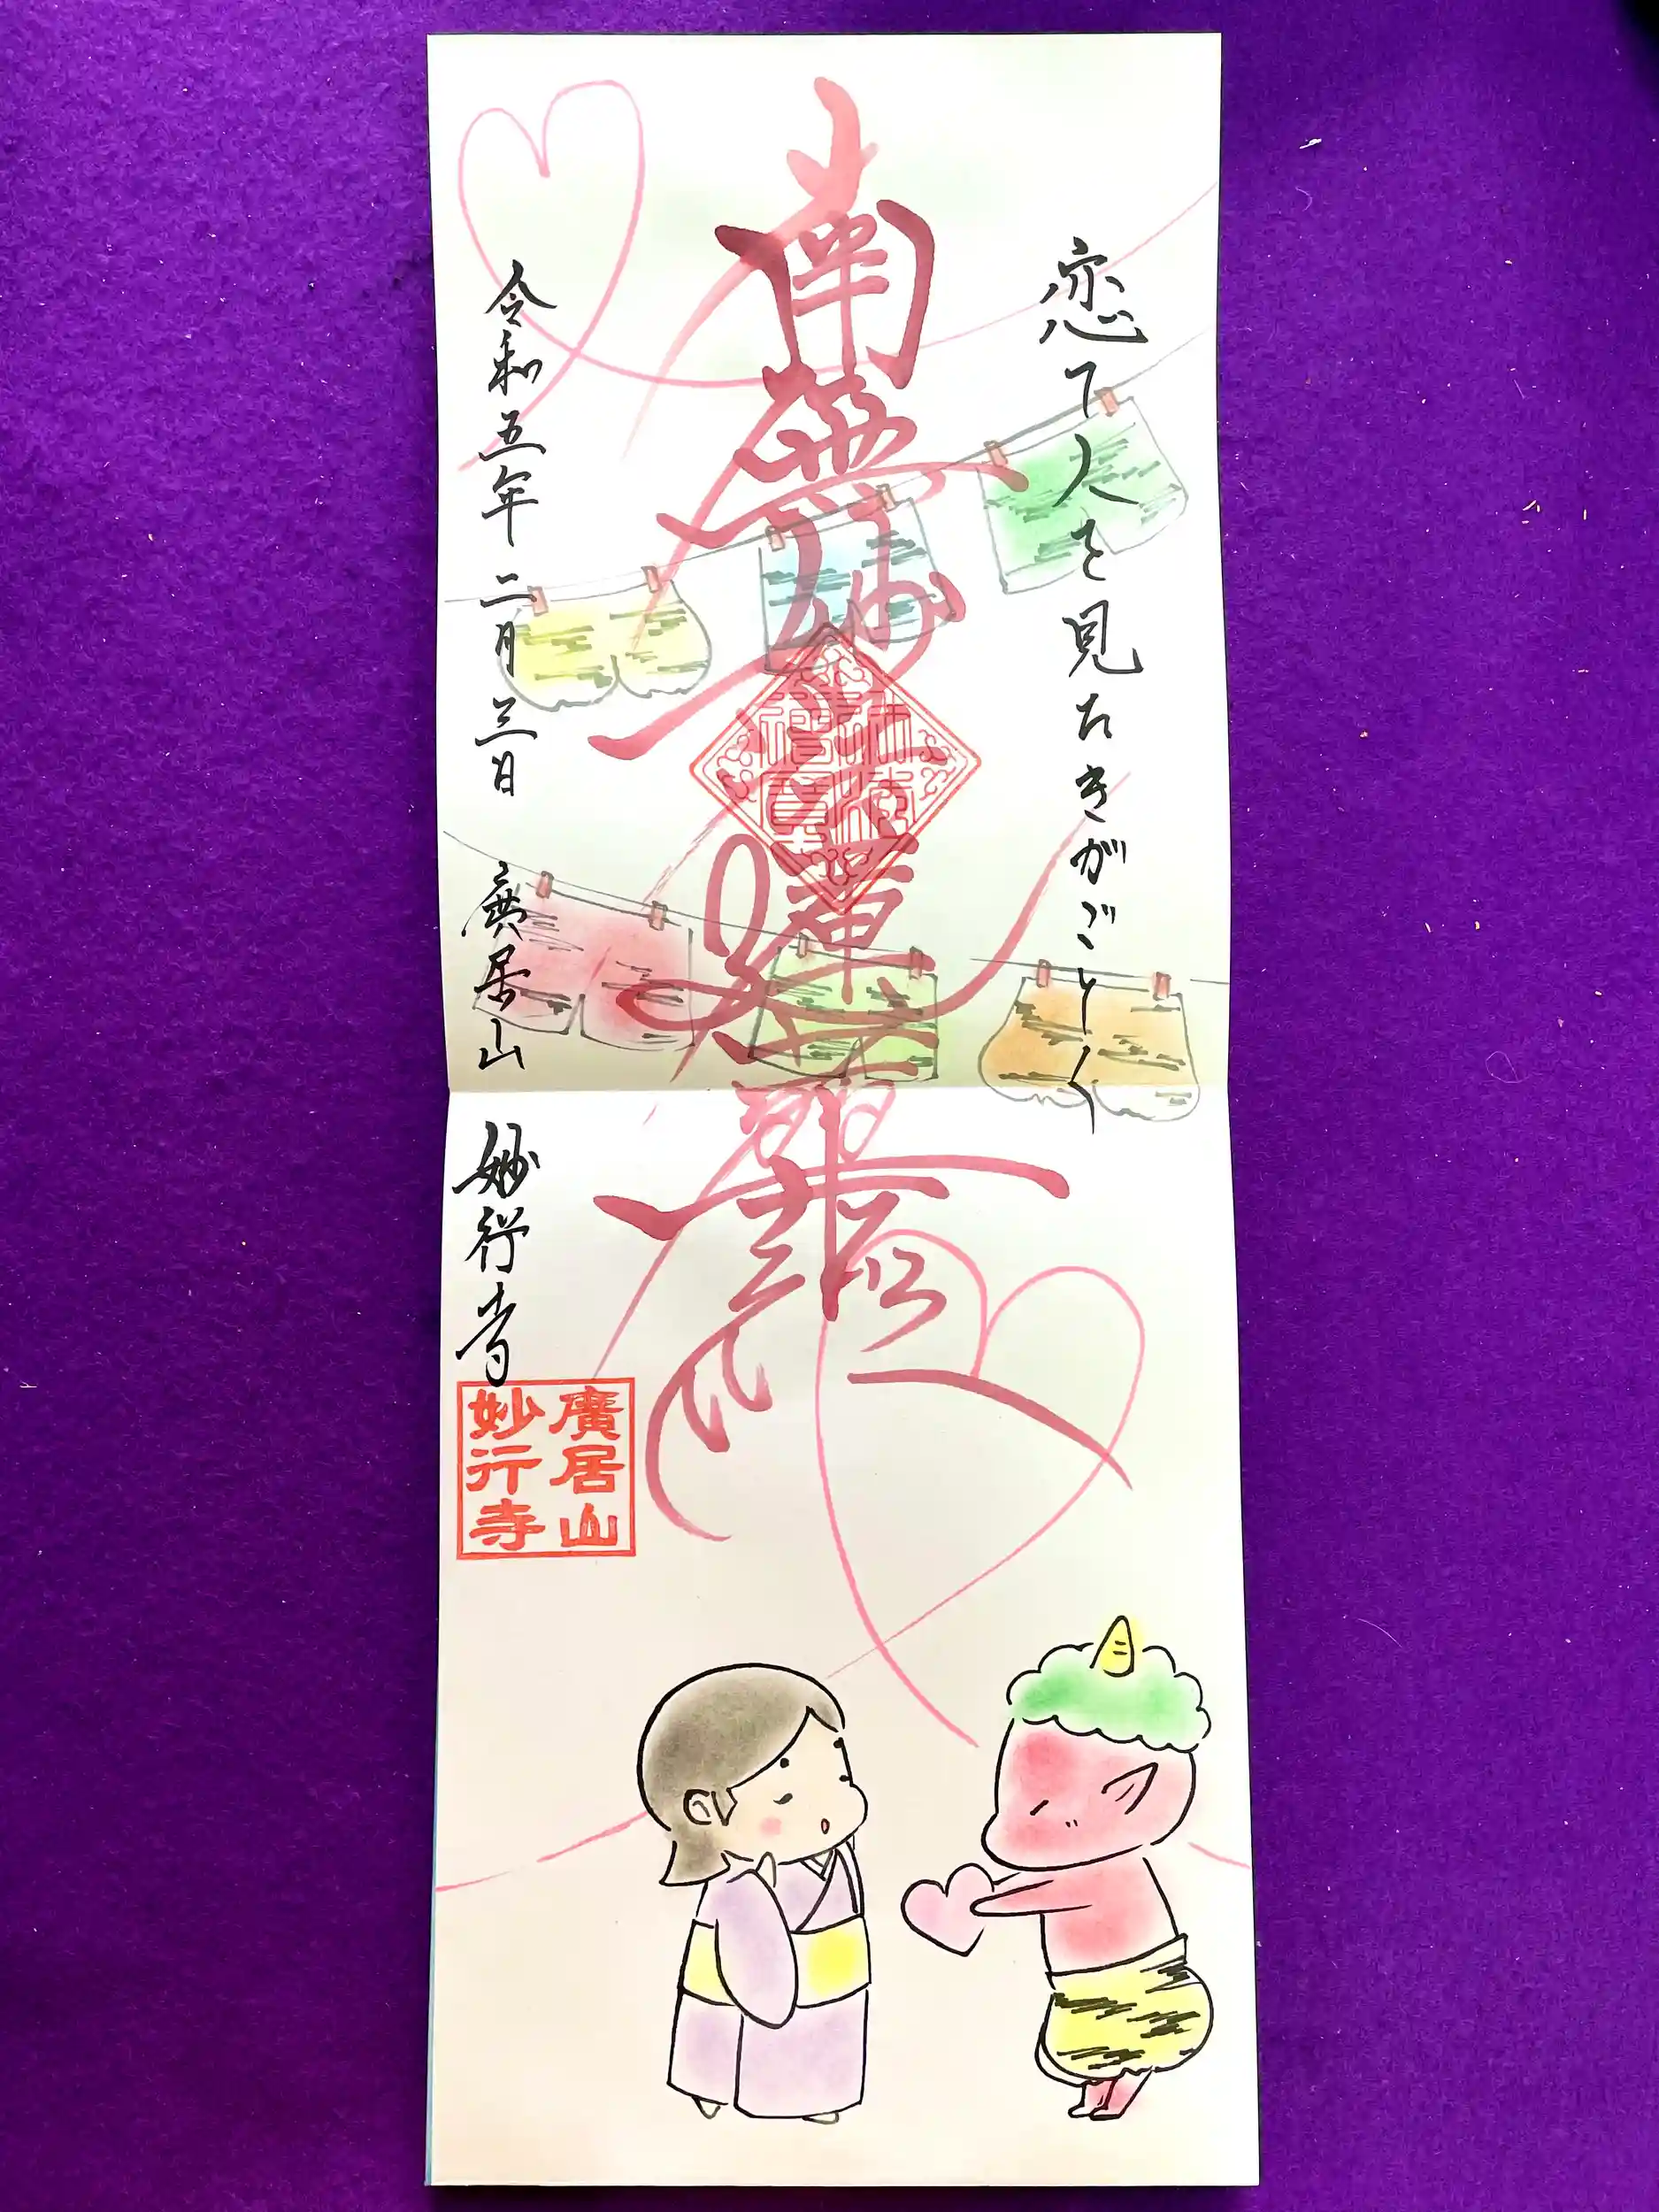 恋て人を見たきがごとく
南無妙法蓮華経
令和五年 二月三日 廣居山 妙行寺
廣居山
妙行寺